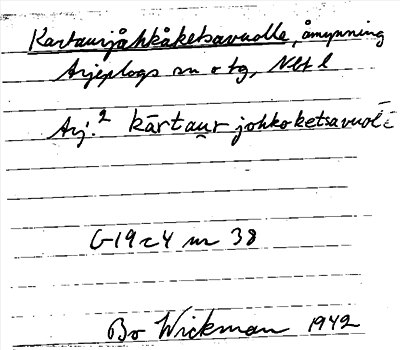 Kartaurjåhkåketsavuolle, åmynning
Arjeplogs sn o tg, Nbt l
Arj.² kārtau̯r johkoketsavuolē
G19c4 nr 38
Bo Wickman 1942